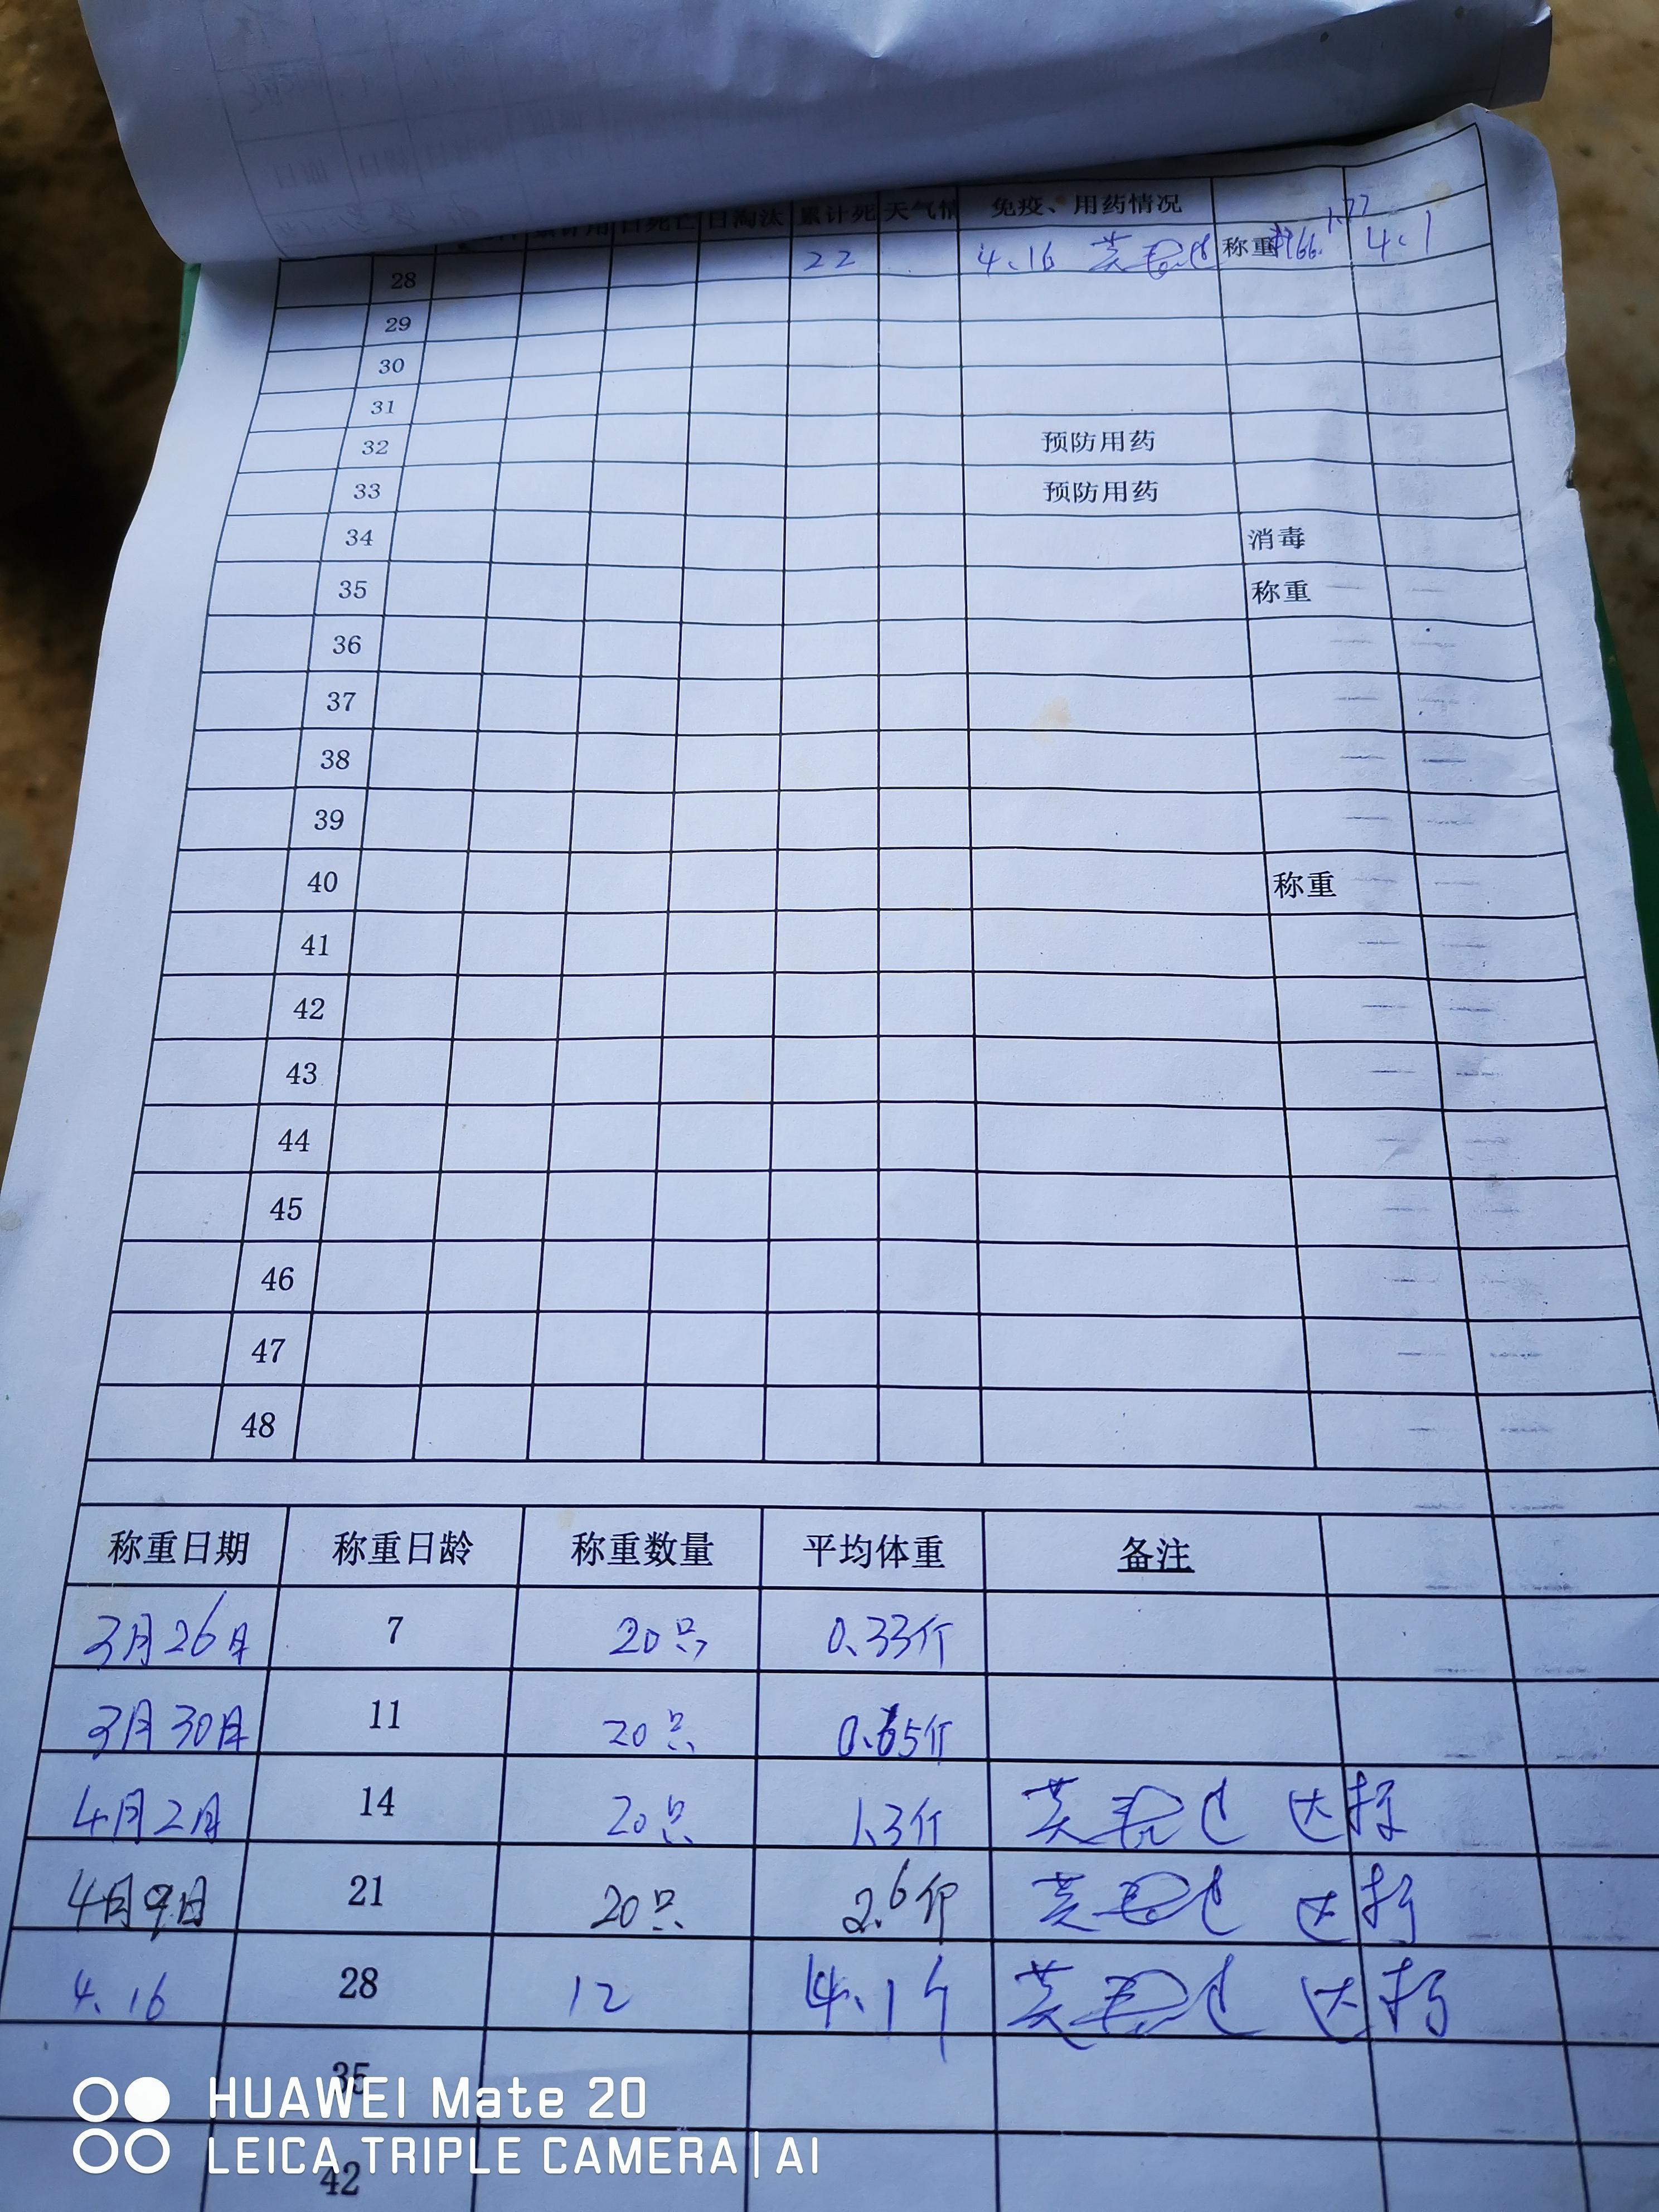 日淘汰 累计死 天气情 免疫、用药情况
28 22 4.16 称重 1.77 4.1
29
30
31
32 预防用药
33 预防用药
34 消毒
35 称重
36
37
38
39
40 称重
41
42
43
44
45
46
47
48
称重日期 称重日龄 称重数量 平均体重 备注
3月26日 7 20只 0.33斤
3月30日 11 20只 0.65斤
4月2日 14 20只 1.3斤 达标
4月9日 21 20只 2.6斤 达标
4.16 28 12 4.1斤 达标
35
42
HUAWEI Mate 20
LEICA TRIPLE CAMERA | AI